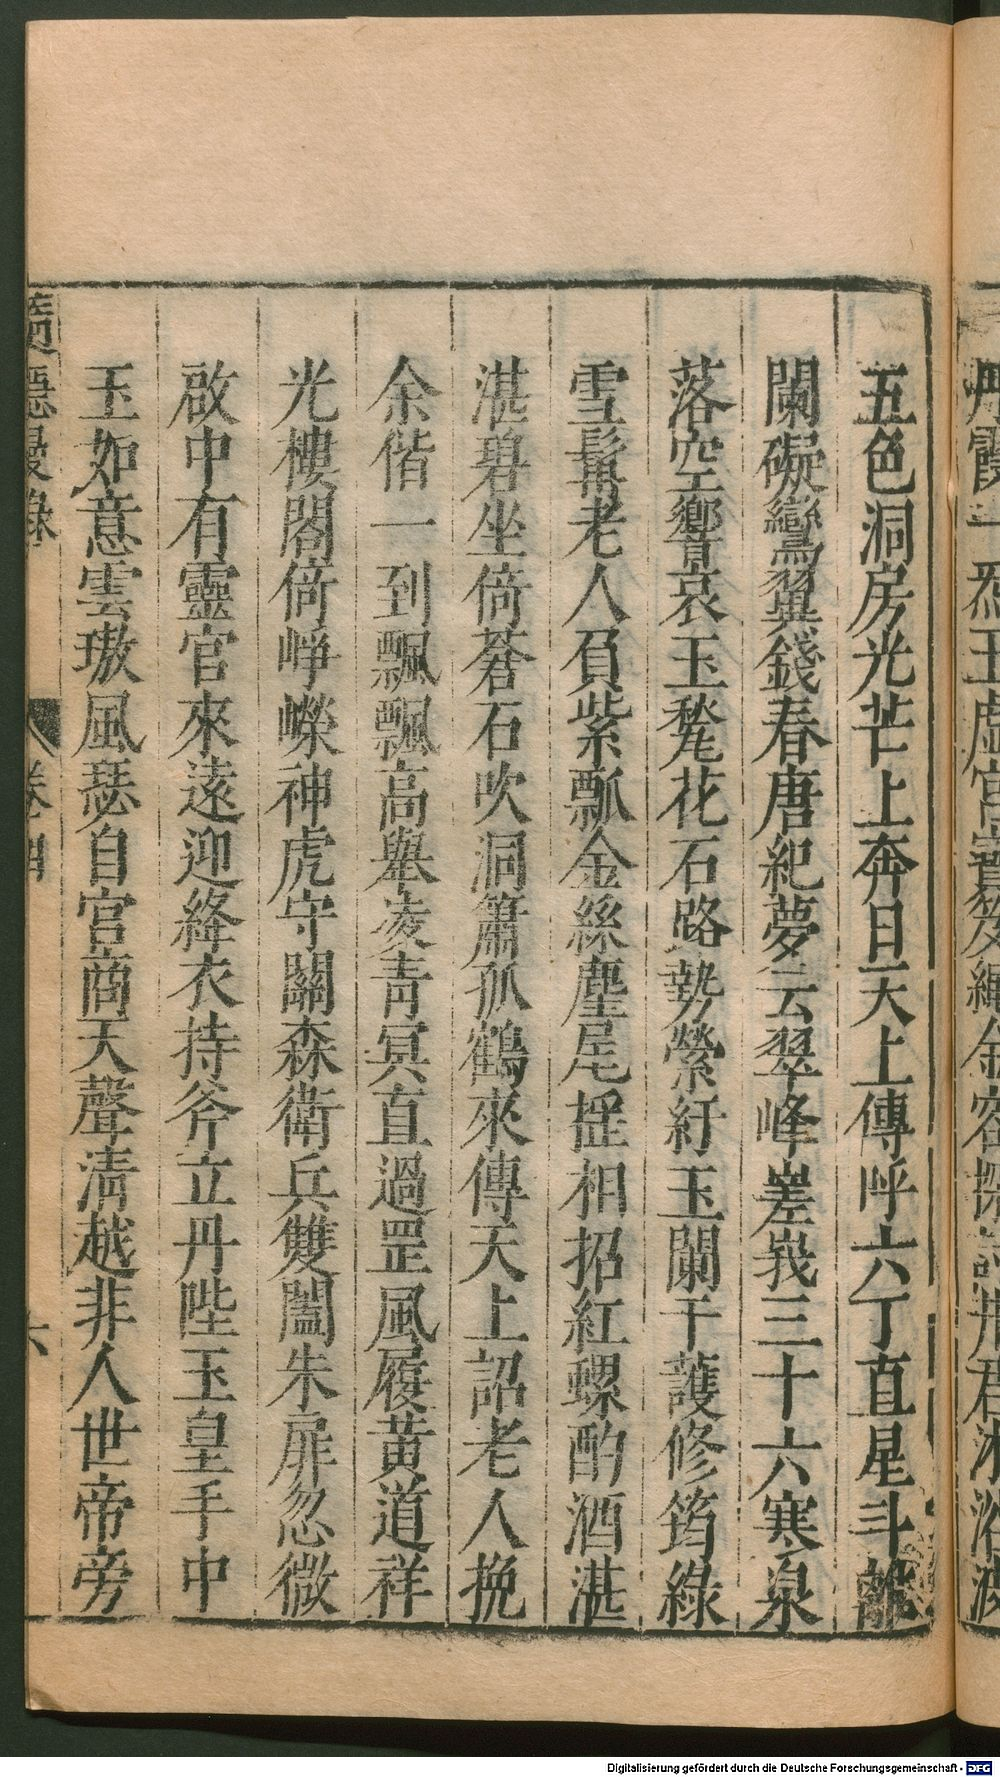 五色洞房光芒上奔日天上傳呼六丁直星斗離
闌礙鸞翼錢春唐紀夢云翠峰嵳峩三十六寒泉
落空響哀玉甃花石路勢縈紆玉闌干護修筠綠
雪髯老人負紫瓢金絲麈尾揺相招紅螺酌酒湛
湛碧坐倚蒼石吹洞簫孤鶴來傳天上詔老人挽
余偕一到飄飄高舉凌青冥直過罡風履黃道祥
光樓閣倚崢嶸神虎守關森衛兵雙闔朱扉忽微
啟中有靈官來遠迎絳衣持斧立丹陛玉皇手中
玉如意雲璈風瑟自宮商天聲淸越非人世帝旁
卷四
六
Digitalisierung gefördert durch die Deutsche Forschungsgemeinschaft - DFG